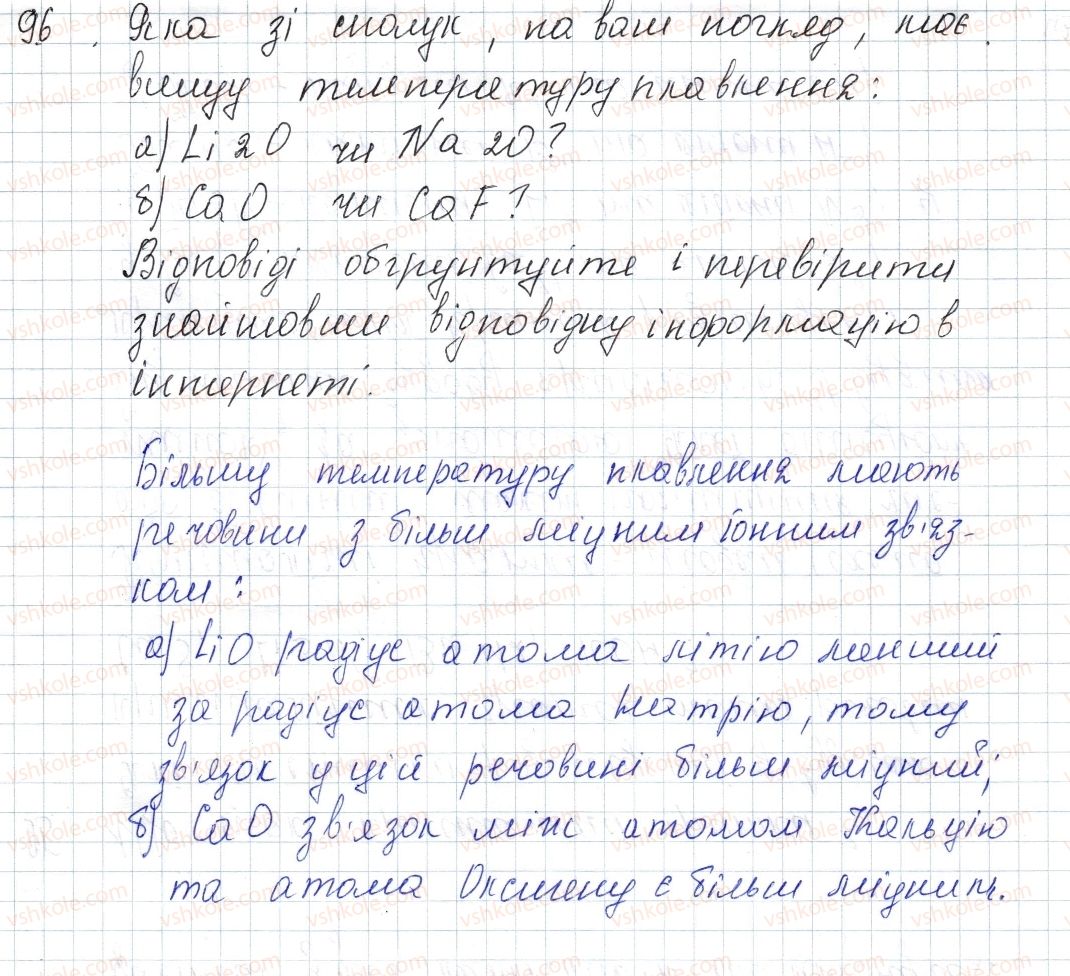 96. Яка зі сполук, на ваш погляд, має
вищу температуру плавлення:
а) Li2O чи Na2O?
б) CaO чи CaF?
Відповіді обгрунтуйте і перевірити
знайшовши відповідну інформацію в
інтернеті.
Більшу температуру плавлення мають
речовини з більш міцним йонним зв'яз-
ком:
а) LiO радіус атома літію менший
за радіус атома Натрію, тому
зв'язок у цій речовині більш міцний;
б) CaO зв'язок між атомом Кальцію
та атома Оксигену є більш міцним.